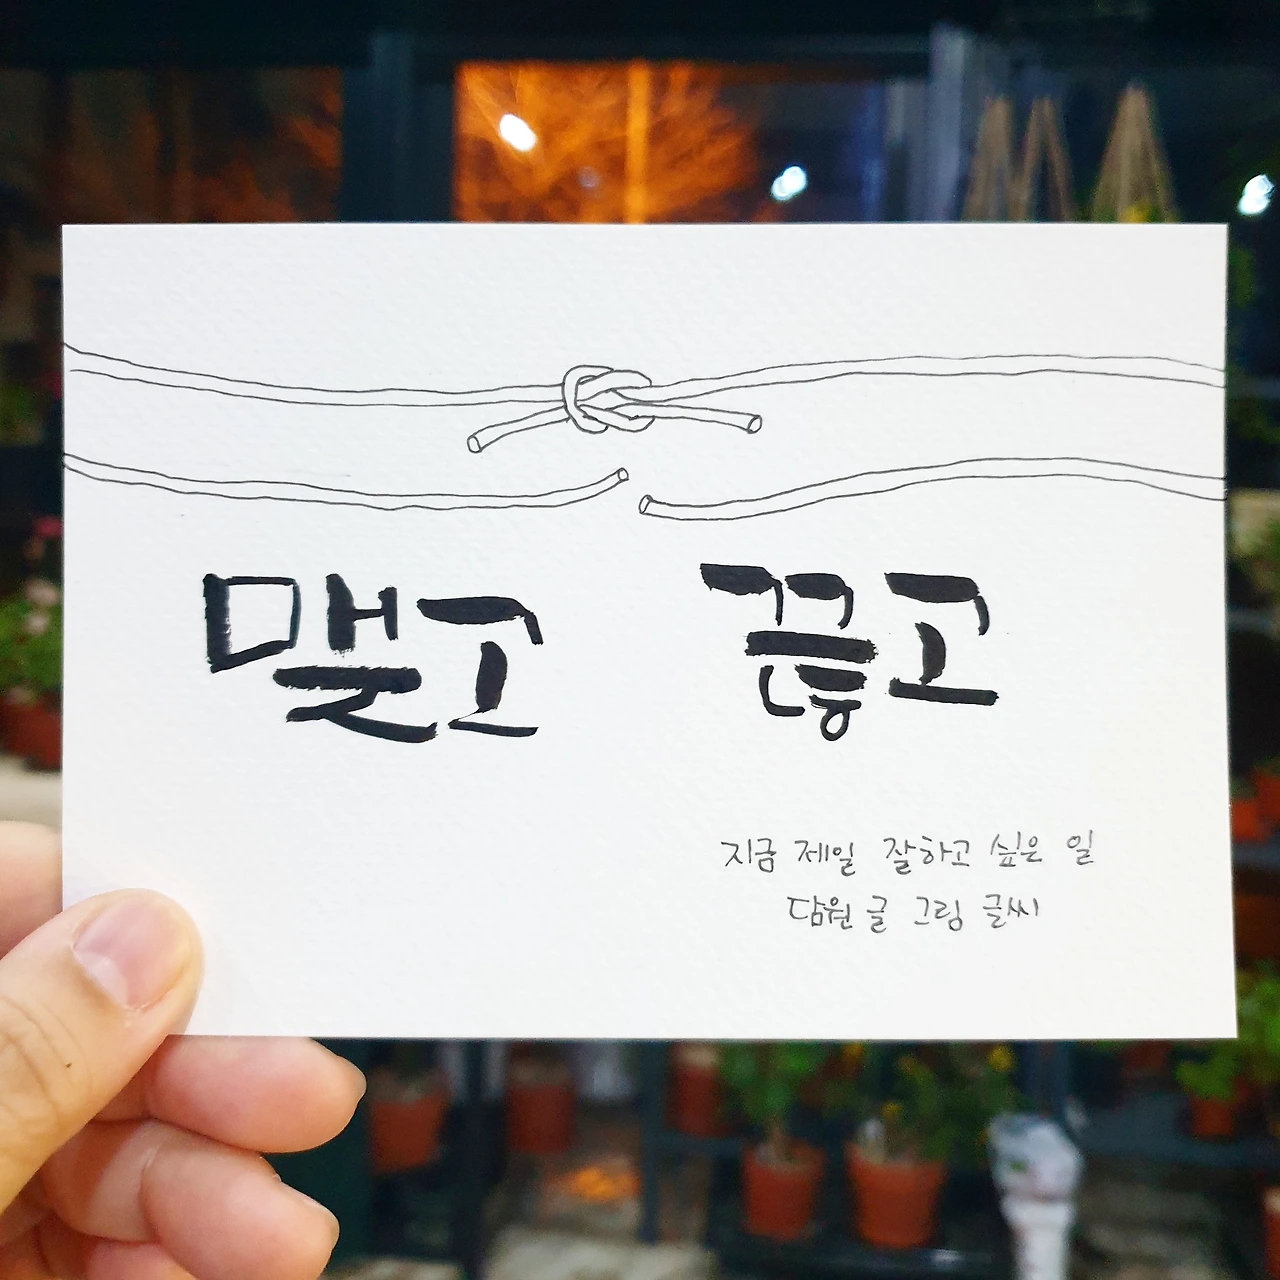 맺고 끊고
지금 제일 잘하고 싶은 일
담원 글 그림 글씨